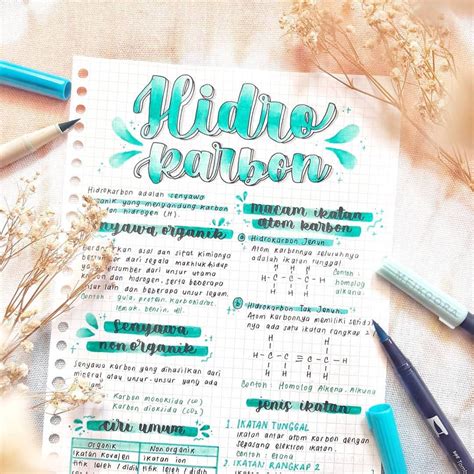 Hidro
karbon
Hidrokarbon adalah senyawa
organik yang menyandung karbon
dan hidrogen (H).
senyawa organik
Berdasarkan asal dan sifat kimianya
bersumber dari segala makhluk hidup
dari unsur utama
dan hidrogen, serta beberapa
lain dan beberapa unsur logam
Contoh : gula, protein, karbohidrat,
lemak, bensin, dll.
Senyawa
non organik
Senyawa karbon yang dihasilkan dari
mineral atau unsur-unsur yang ada
Karbon monoksida (CO)
Karbon dioksida (CO₂)
ciri umum
Organik Non organik
Ikatan Kovalen Ikatan ion
titik leleh / didih titik leleh / didih
macam ikatan
atom karbon
a Hidrokarbon Jenuh
Atom karbonnya seluruhnya
adalah ikatan tunggal.
H H H
H-C-C-C-H
H H H
Contoh :
homolog
alkana
b Hidrokarbon Tak Jenuh
Atom karbonnya memiliki
nya ada satu ikatan rangkap 2
C = C - C - H
Contoh : Homolog Alkena, Alkuna
jenis ikatan
1. IKATAN TUNGGAL
Ikatan antar atom karbon dengan
elektron segelang elektron
2. IKATAN RANGKAP 2